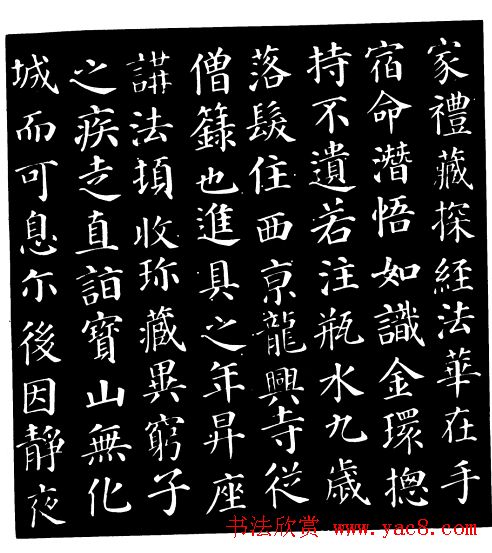 家禮藏探經法華在手
宿命潛悟如識金環摠
持不遺若注瓶水九歲
落髮住西京龍興寺從
僧籙也進具之年昇座
講法頓收珎藏異窮子
之疾走直詣寶山無化
城而可息尒後因靜夜
书法欣赏 www.yac8.com